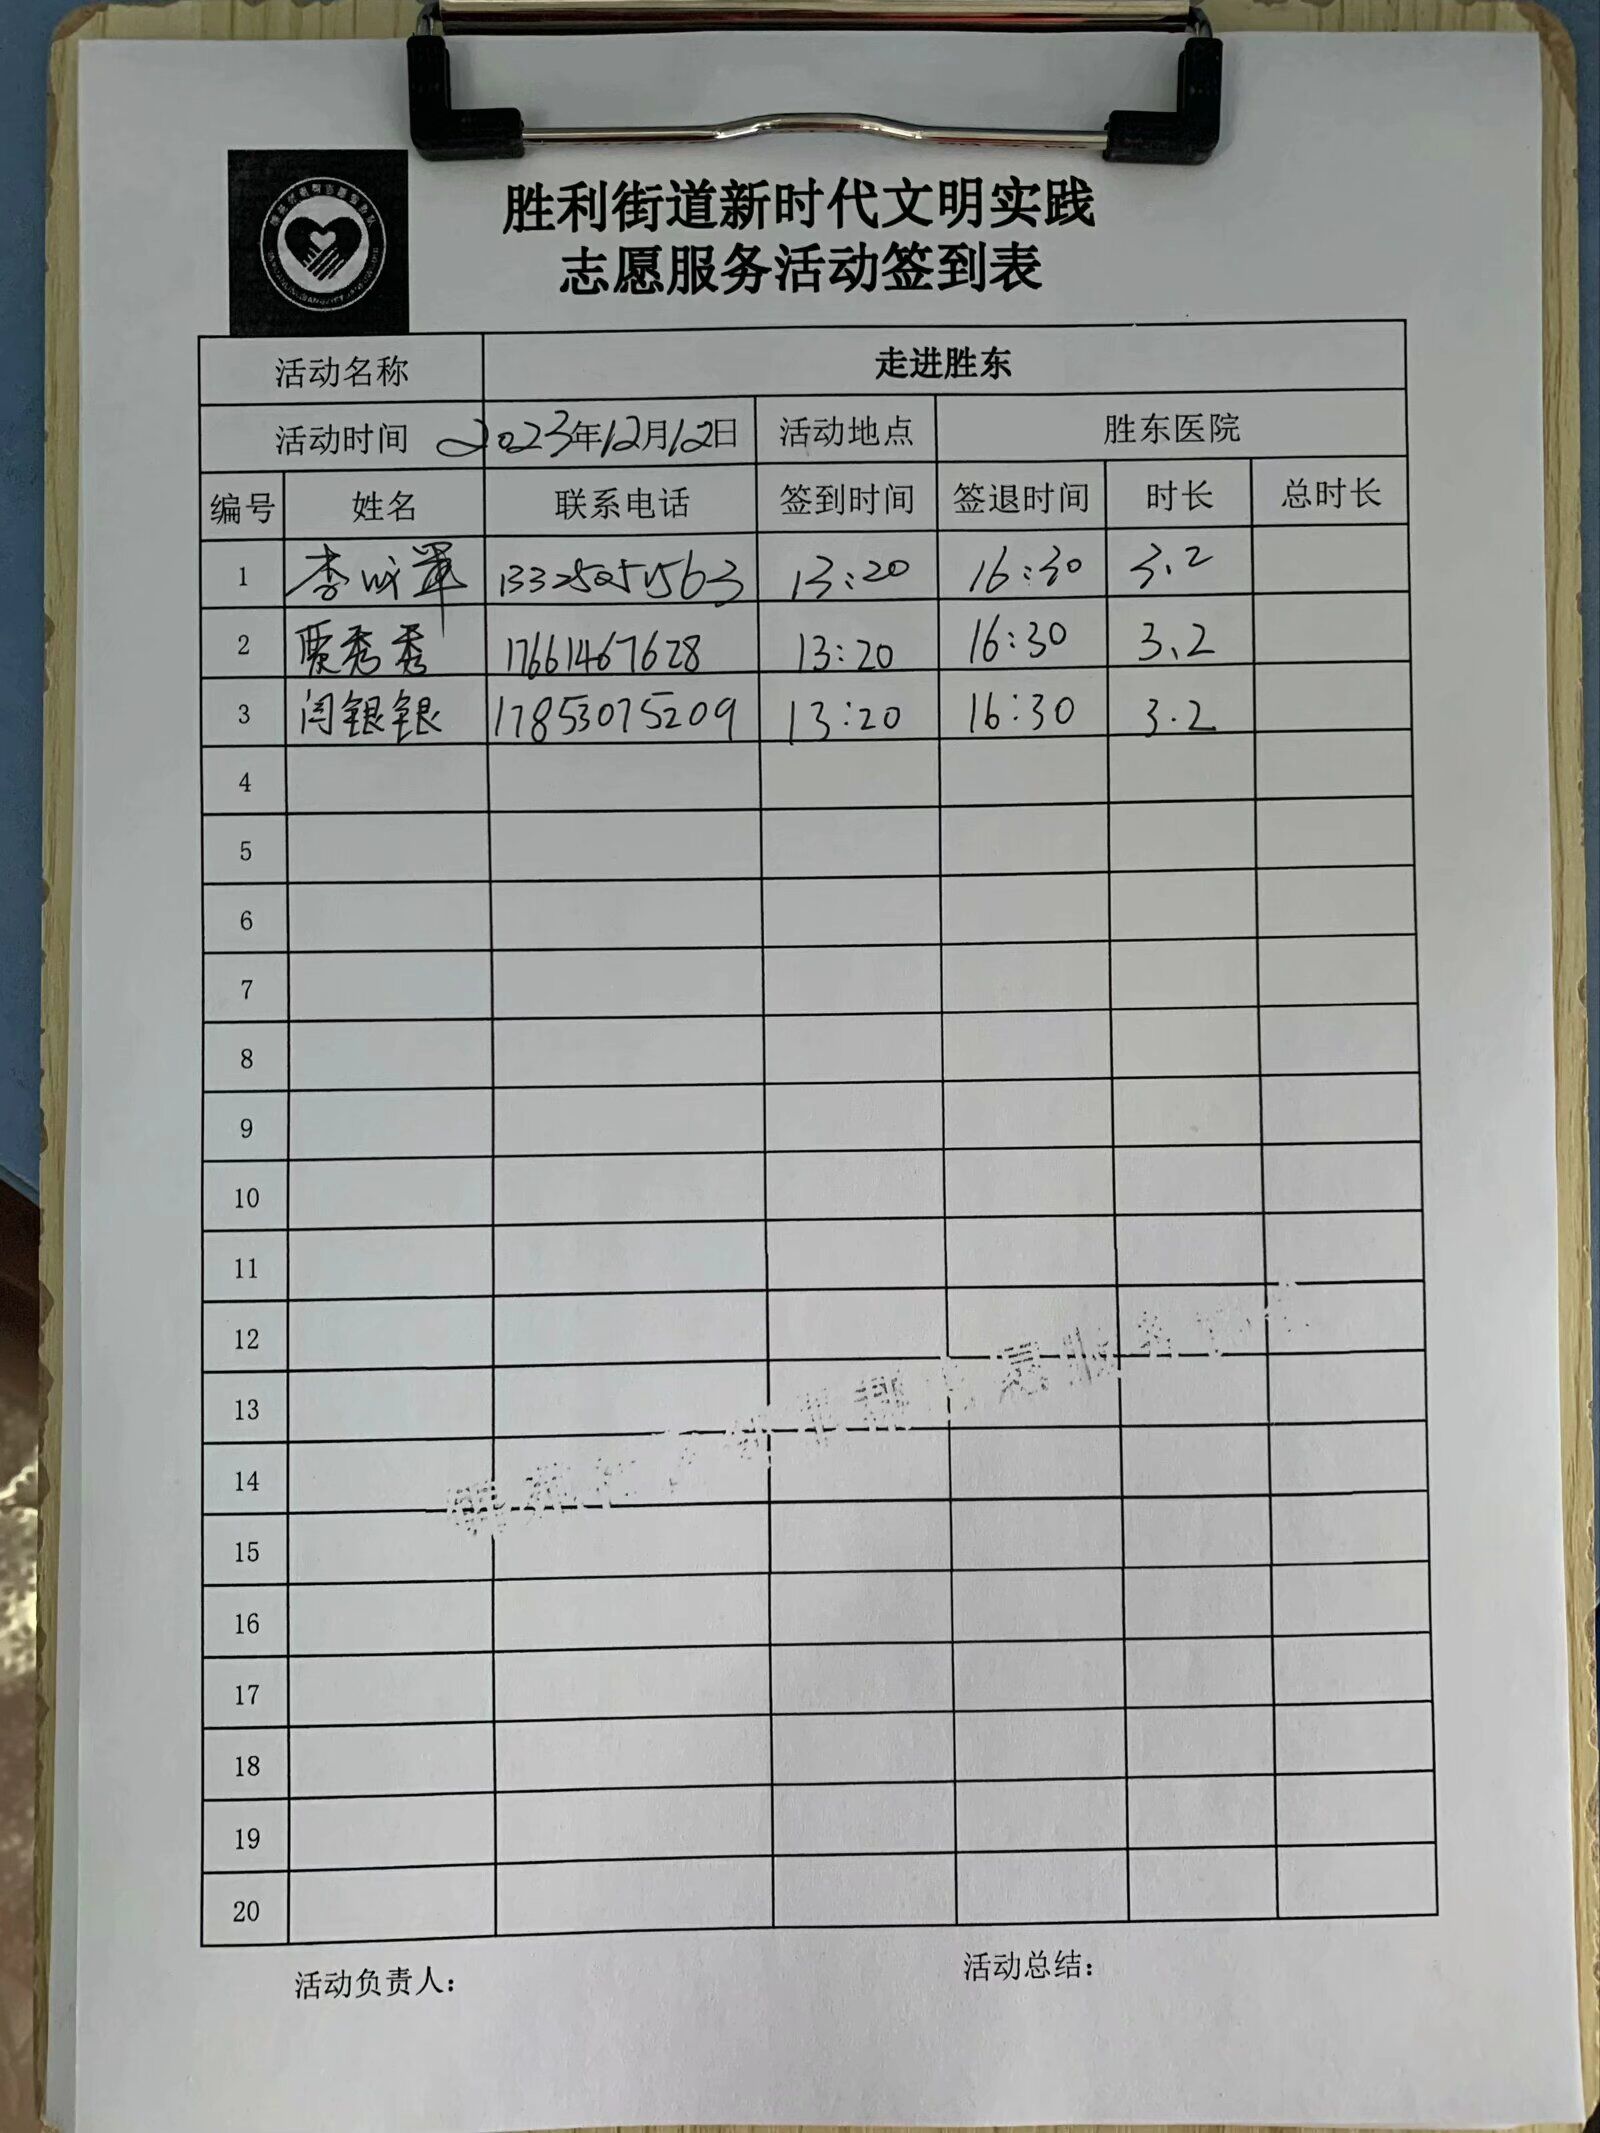 胜利街道新时代文明实践
志愿服务活动签到表
活动名称 走进胜东
活动时间 2023年12月12日 活动地点 胜东医院
编号 姓名 联系电话 签到时间 签退时间 时长 总时长
1 李 13:20 16:30 3.2
2 贾秀秀 17661467628 13:20 16:30 3.2
3 闫银银 17853075209 13:20 16:30 3.2
4
5
6
7
8
9
10
11
12
13
14
15
16
17
18
19
20
活动负责人: 活动总结: